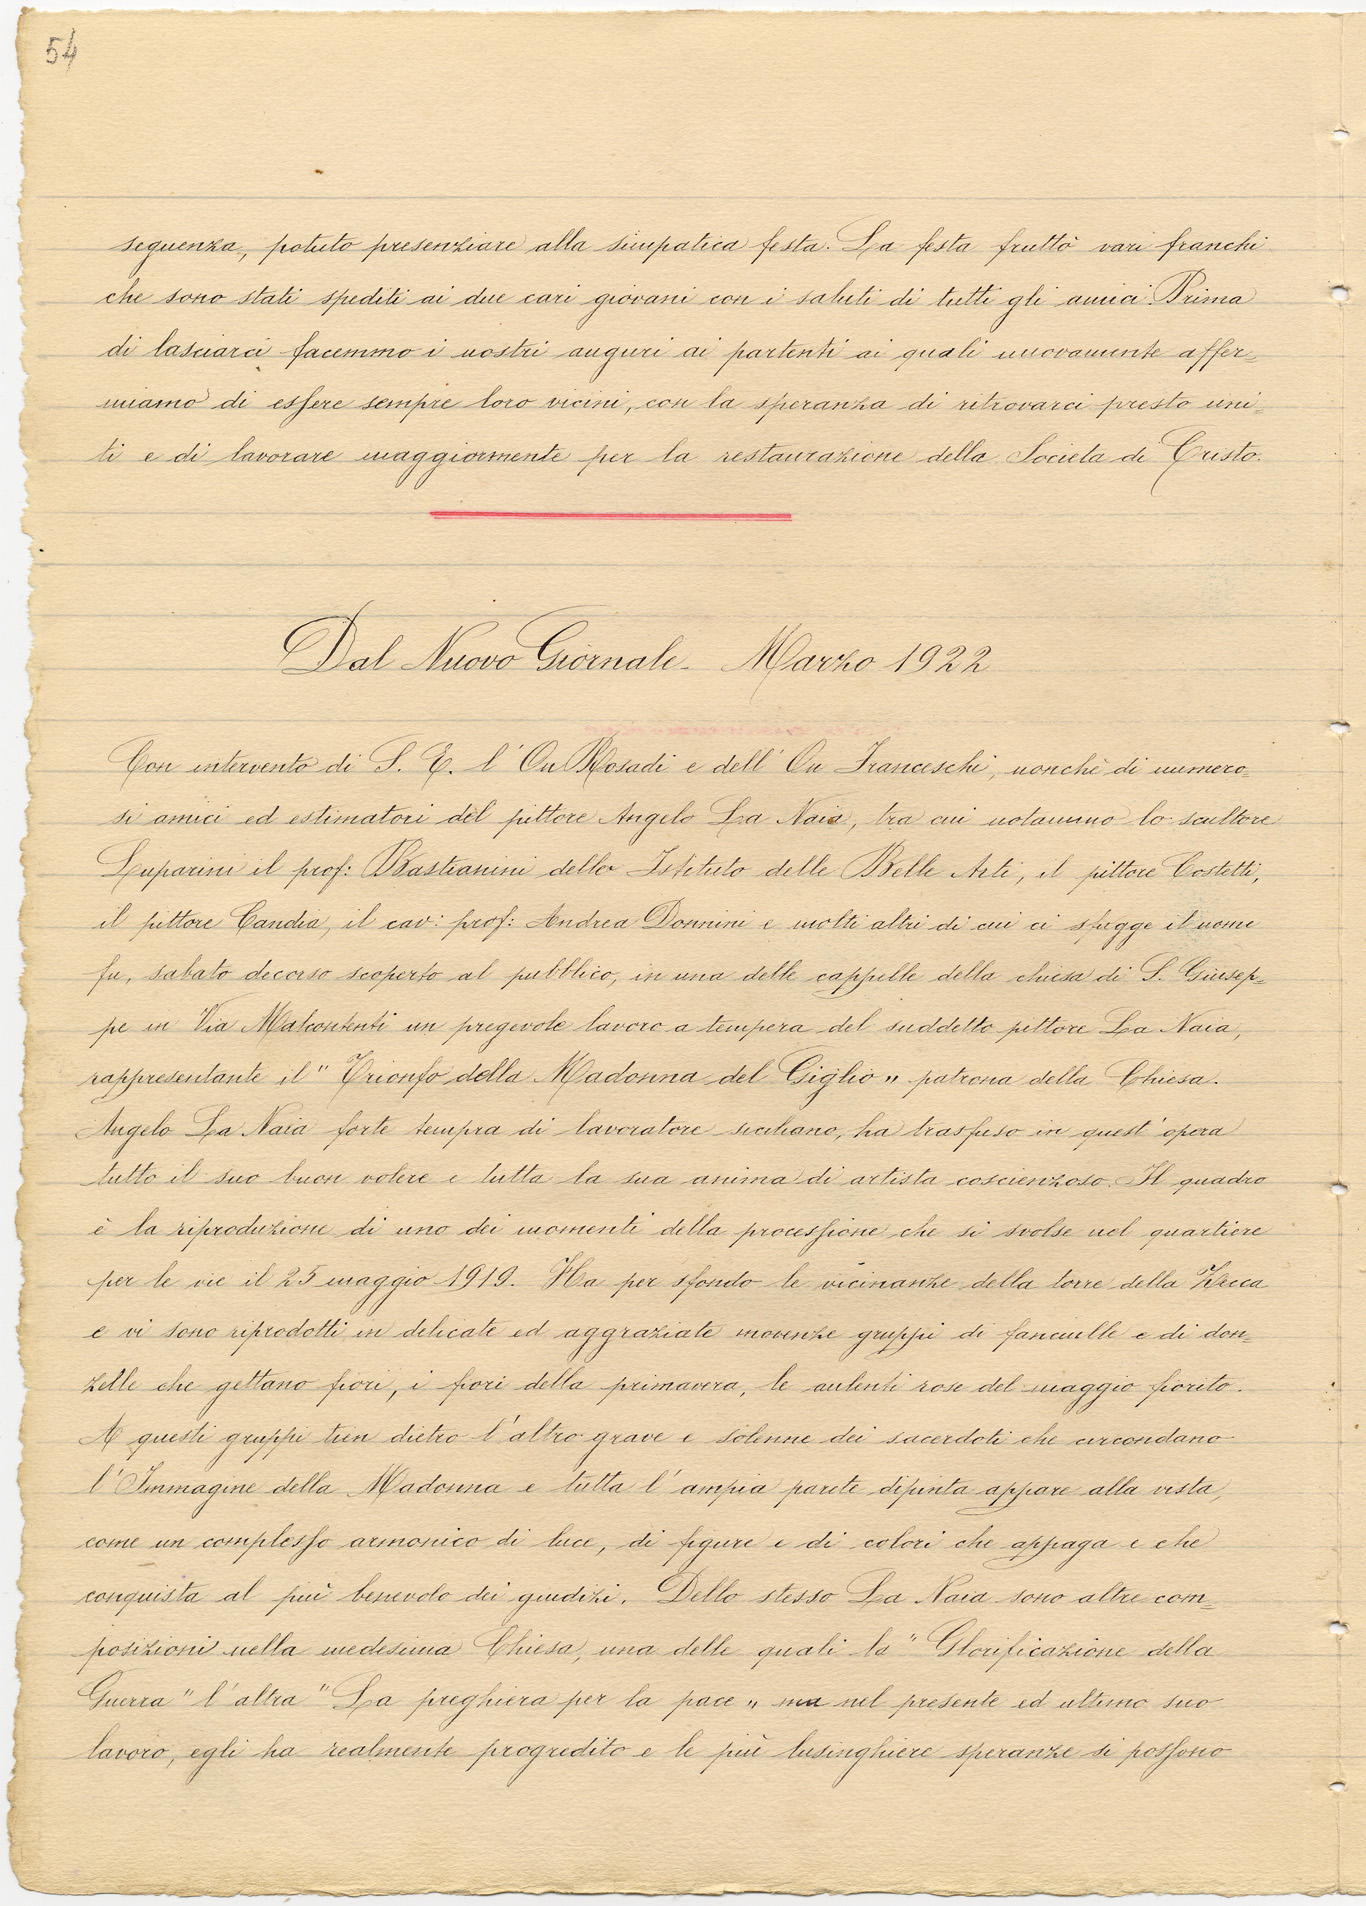 54
seguenza, potuto presenziare alla simpatica festa. La festa fruttò vari franchi
che sono stati spediti ai due cari giovani con i saluti di tutti gli amici. Prima
di lasciarci facemmo i nostri auguri ai partenti ai quali nuovamente affer=
miamo di essere sempre loro vicini, con la speranza di ritrovarci presto uni=
ti e di lavorare maggiormente per la restaurazione della Societa di Cristo.
Dal Nuovo Giornale - Marzo 1922
Con intervento di S. E. l'On Rosadi e dell'On Franceschi, nonchè di numero=
si amici ed estimatori del pittore Angelo La Naia, tra cui notammo lo scultore
Luparini il prof: Bastianini dello Istituto delle Belle Arti, il pittore Costetti,
il pittore Candia, il cav: prof: Andrea Donnini e molti altri di cui ci sfugge il nome
fu, sabato decorso scoperto al pubblico, in una delle cappelle della chiesa di S. Giusep=
pe in Via Malcontenti un pregevole lavoro a tempera del suddetto pittore La Naia,
rappresentante il " Trionfo della Madonna del Giglio " patrona della Chiesa.
Angelo La Naia forte tempra di lavoratore siciliano, ha trasfuso in quest'opera
tutto il suo buon volere e tutta la sua anima di artista coscienzoso. Il quadro
è la riproduzione di uno dei momenti della processione che si svolse nel quartiere
per le vie il 25 maggio 1919. Ha per sfondo le vicinanze della torre della Zecca
e vi sono riprodotti in delicate ed aggraziate movenze gruppi di fanciulle e di don=
zelle che gettano fiori, i fiori della primavera, le aulenti rose del maggio fiorito.
A questi gruppi tien dietro l'altro grave e solenne dei sacerdoti che circondano
l'Immagine della Madonna e tutta l'ampia parete dipinta appare alla vista,
come un complesso armonico di luce, di figure e di colori che appaga e che
conquista al più benevolo dei giudizi. Dello stesso La Naia sono altre com=
posizioni nella medesima Chiesa, una delle quali la " Glorificazione della
Guerra " l'altra " La preghiera per la pace " ma nel presente ed ultimo suo
lavoro, egli ha realmente progredito e le più lusinghiere speranze si possono